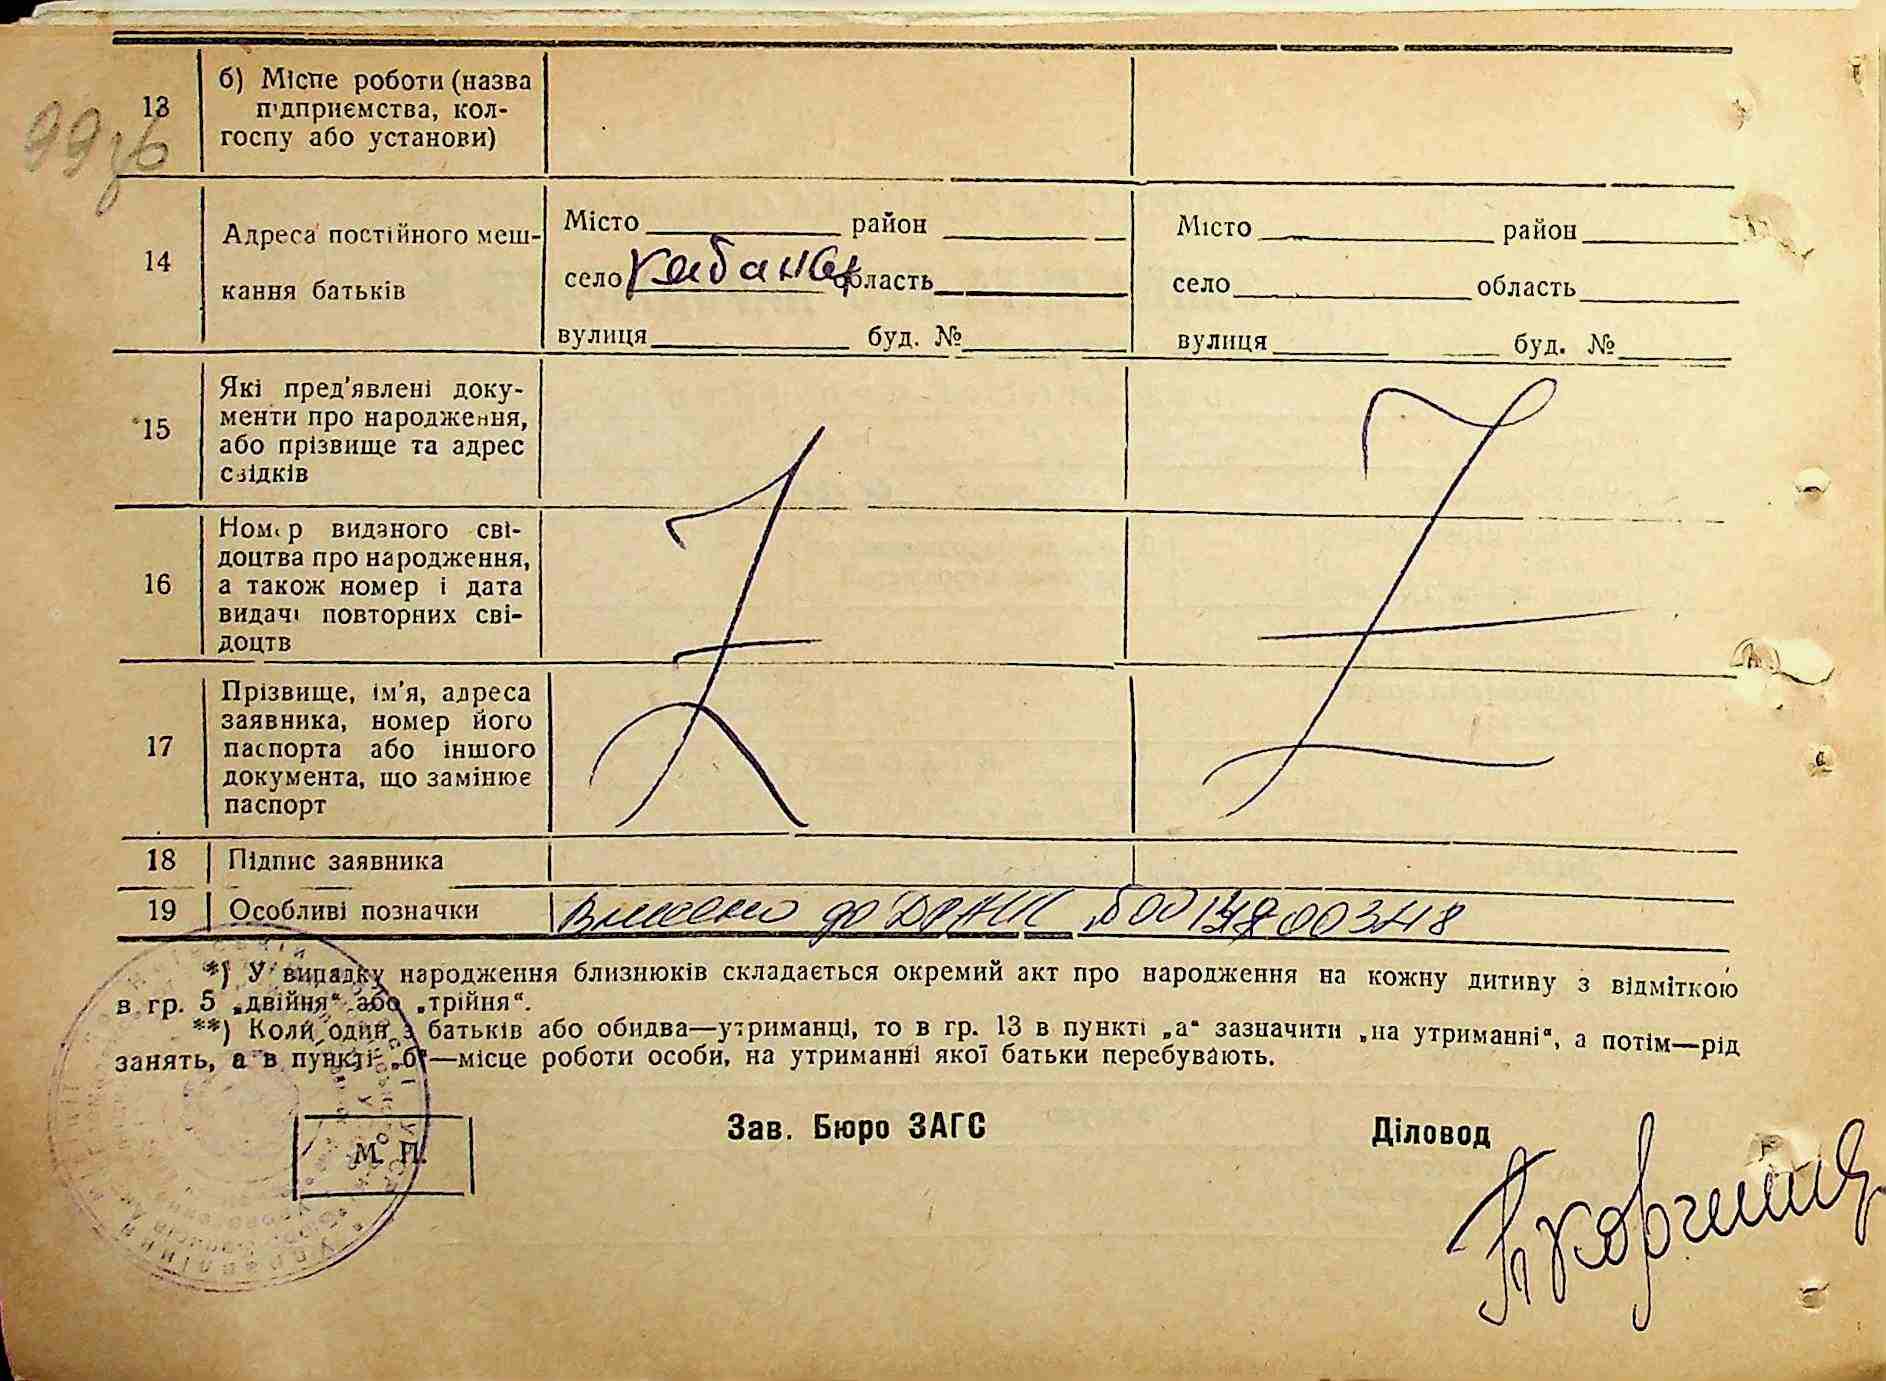 99зв
13
б) Місце роботи (назва
підприємства, кол-
госпу або установи)
14
Адреса постійного меш-
кання батьків
Місто район
село Кабанья область
вулиця буд. №
Місто район
село область
вулиця буд. №
15
Які пред'явлені доку-
менти про народження,
або прізвище та адрес
свідків
16
Номер виданого сві-
доцтва про народження,
а також номер і дата
видачі повторних сві-
доцтв
17
Прізвище, ім'я, адреса
заявника, номер його
паспорта або іншого
документа, що замінює
паспорт
18 Підпис заявника
19 Особливі позначки Внесено до ДРАЦС
*) У випадку народження близнюків складається окремий акт про народження на кожну дитину з відміткою
в гр. 5 „двійня“ або „трійня“.
**) Коли один з батьків або обидва—утриманці, то в гр. 13 в пункті „а“ зазначити „на утриманні“, а потім—рід
занять, а в пункті „б“—місце роботи особи, на утриманні якої батьки перебувають.
М. П.
Зав. Бюро ЗАГС
Діловод